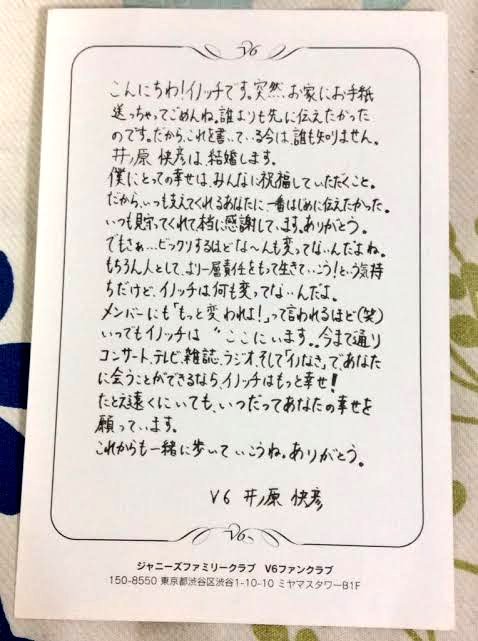 V6
こんにちわ!イノッチです。突然お家にお手紙
送っちゃってごめんね。誰よりも先に伝えたかった
のです。だから、これを書いている今は、誰も知りません。
井ノ原 快彦は、結婚します。
僕にとっての幸せは、みんなに祝福していただくこと。
だから、いつも支えてくれるあなたに、一番はじめに伝えたかった。
いつも見守ってくれて本当に感謝しています。ありがとう。
でもさぁ…ビックリするほどな〜んも変ってないんだよね。
もちろん人として、より一層責任をもって生きていこう!という気持
ちだけど、イノッチは何も変ってな〜いんだよ。
メンバーにも「もっと変われよ!」って言われるほど(笑)
いつでもイノッチは"ここにいます。今まで通り
コンサート、テレビ、雑誌、ラジオ、そして「イノなき」であなた
に会うことができるなら、イノッチはもっと幸せ!
たとえ遠くにいても、いつだってあなたの幸せを
願っています。
これからも一緒に歩いていこうね。ありがとう。
V6 井ノ原 快彦
V6
ジャニーズファミリークラブ V6ファンクラブ
150-8550 東京都渋谷区渋谷1-10-10 ミヤマスタワーB1F